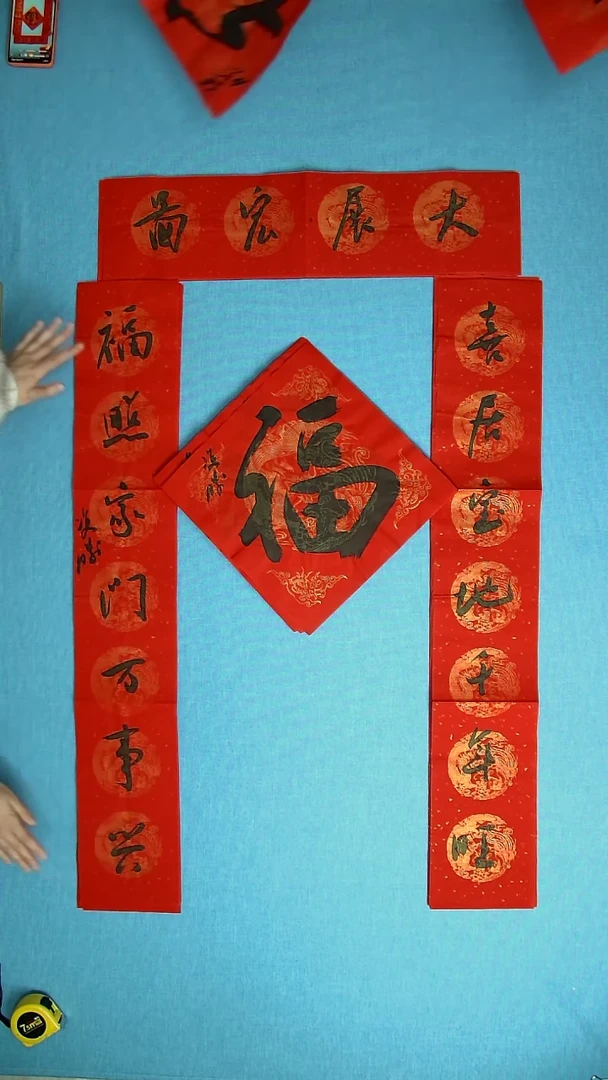 大展宏图
喜居宝地千年旺
福照家门万事兴
福